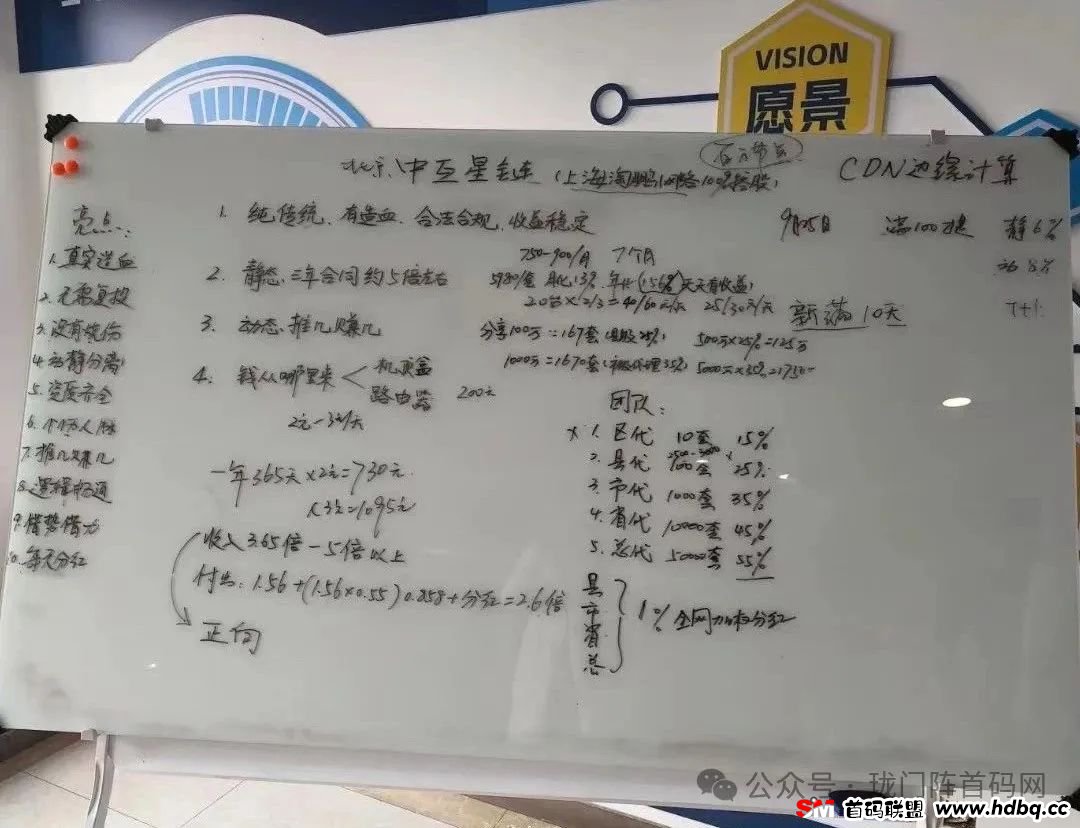 VISION
愿景
百万节点
北京中互星链(上海淘鹏网络10%控股)
CDN边缘计算
亮点:
1. 真实造血
2. 无需复投
3. 没有烧伤
4. 动静分离
5. 资质齐全
6. 个个为人脉
7. 推几赚几
8. 逻辑畅通
9. 借势借力
10. 每天分红
1. 纯传统、有造血、合法合规、收益稳定
9月25日 满100提 静6%
动8%
T+1
750-900/月 7个月
2. 静态、三年合同约5倍左右
5980/套 月化13% 年化(156%)天天有收益
20台×2/3=40/60元/天 25/30元/天
新满10天
3. 动态、推几赚几
分享100万=167套(县级25%) 500万×25%=125万
1000万=1670套(市级代理35%) 5000万×35%=1750-
4. 钱从哪里来
机顶盒
路由器
200元
2元-3元/天
一年365天×2元=730元
×3元=1095元
收入3.65倍-5倍以上
付出:1.56+(1.56×0.55)0.858+分红=2.6倍
正向
团队:
× 1. 区代 10套 15%
2. 县代 100套 25%
3. 市代 1000套 35%
4. 省代 10000套 45%
5. 总代 50000套 55%
县
市
省
总
1% 全网加权分红
公众号·珑门阵首码网
SM 首码联盟 www.hdbq.cc